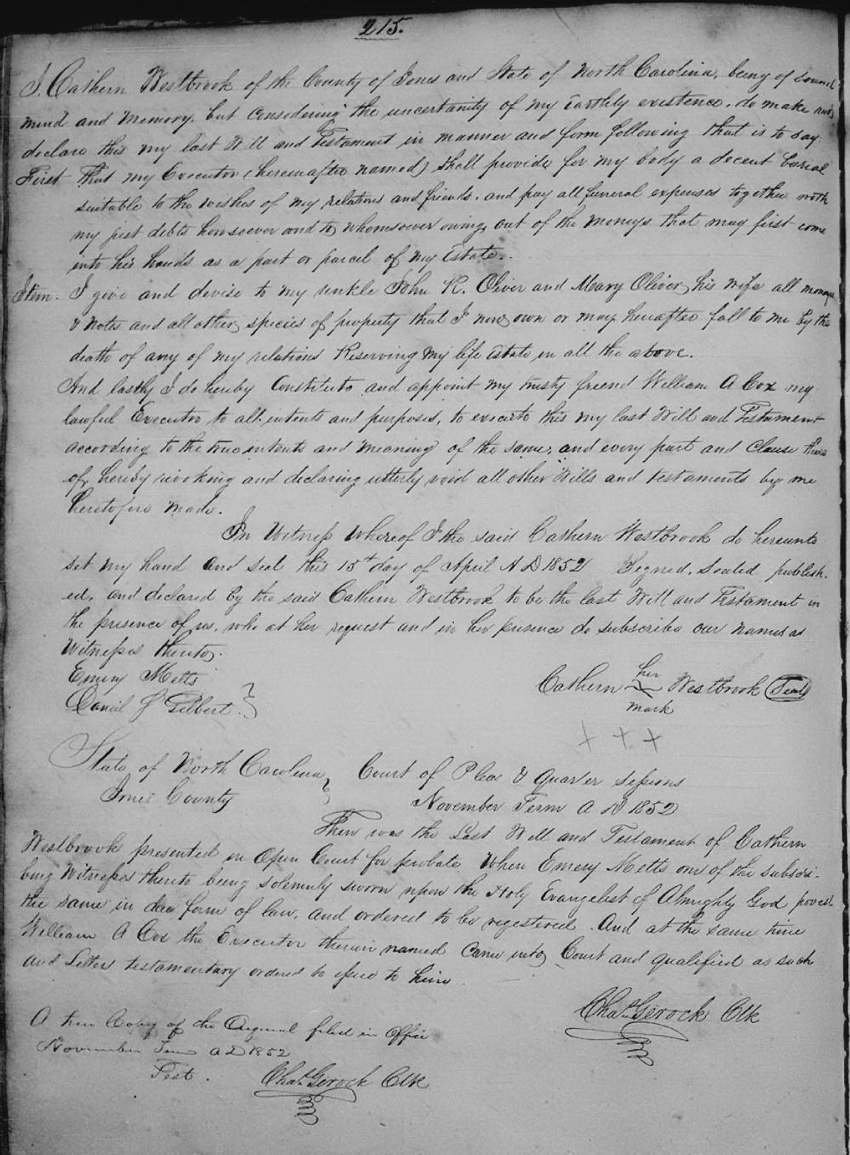 215.
I, Cathern Westbrook of the County of Jones and State of North Carolina, being of sound
mind and memory, but considering the uncertainty of my Earthly existence, do make and
declare this my last Will and Testament in manner and form following that is to say
First That my Executor (hereinafter named) shall provide for my body a decent burial
suitable to the wishes of my relations and friends, and pay all funeral expenses together with
my just debts howsoever and to whomsoever owing, out of the moneys that may first come
into his hands as a part or parcel of my Estate.
Item. I give and devise to my unkle John R. Oliver and Mary Oliver, his wife all money
& Notes and all other species of property that I now own or may hereafter fall to me by the
death of any of my relations Reserving my life Estate in all the above.
And lastly I do hereby Constitute and appoint my trusty friend William A Cox my
lawful Executor to all intents and purposes, to execute this my last Will and Testament
according to the true intents and meaning of the same, and every part and clause there
of, hereby revoking and declaring utterly void all other Wills and testaments by me
heretofore made.
In Witness Whereof I the said Cathern Westbrook do hereunto
set my hand and seal this 15th day of April A D 1852 Signed, Sealed publish-
ed, and declared by the said Cathern Westbrook to be the last Will and Testament in
the presence of us, who at her request and in her presence do subscribe our names as
Witnesses thereto.
Emery Metts
Daniel J Gilbert.
Cathern her Westbrook (Seal)
mark
+ + +
State of North Carolina Court of Pleas & Quarter sessions
Jones County November Term A D 1852
Then was the Last Will and Testament of Cathern
Westbrook presented in Open Court for probate, When Emery Metts one of the subscri-
bing Witnesses thereto being solemnly sworn upon the Holy Evangelist of Almighty God proves
the same in due form of law, and ordered to be registered. And at the same time
William A Cox the Executor therein named Came into Court and qualified as such
and Letters testamentary ordered to issue to him
Chas. Gerock Clk
A true Copy of the Original filed in Office
November Term A D 1852
Test. Chas. Gerock Clk